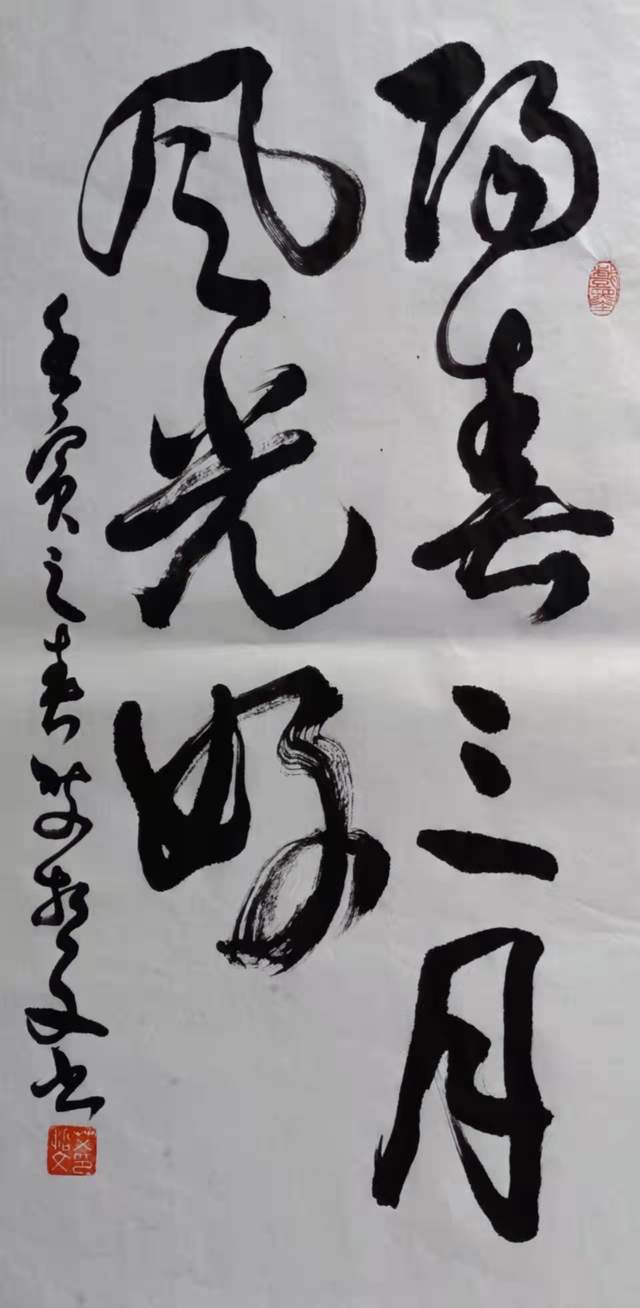 阳春三月
风光好
壬寅之春
书